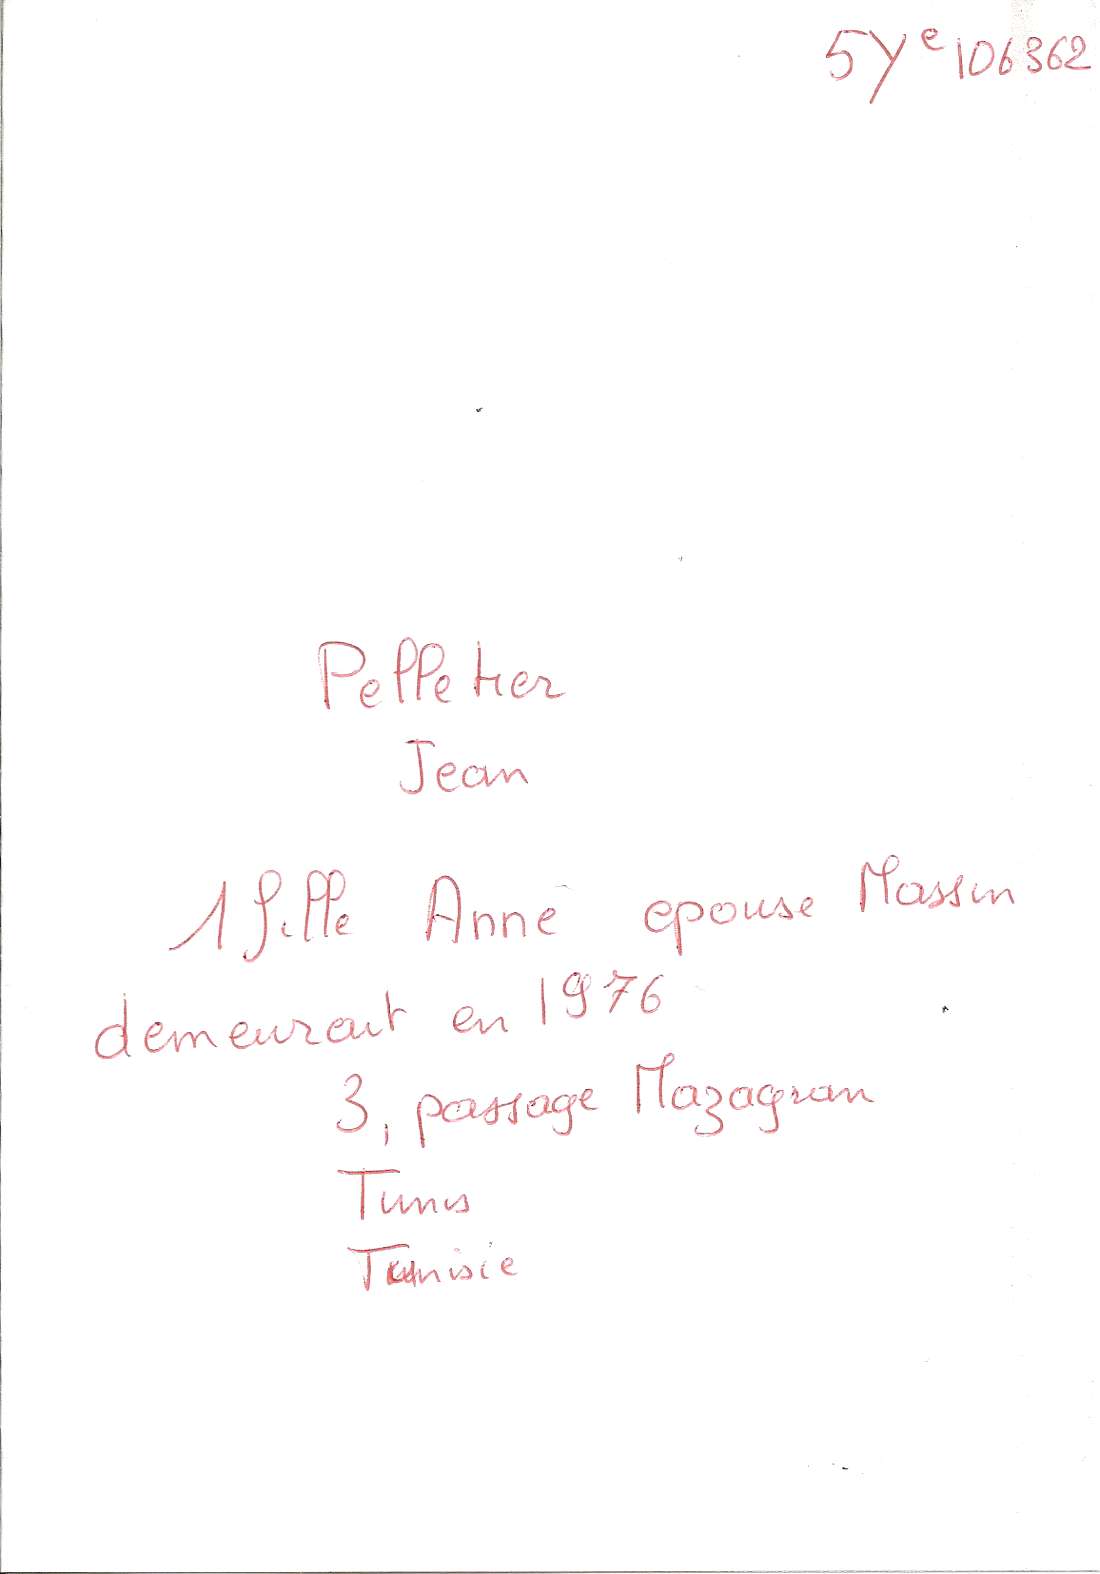 5Ye 106362
Pelletier
Jean
1 fille Anne epouse Massin
demeurait en 1976
3, passage Mazagran
Tunis
Tunisie